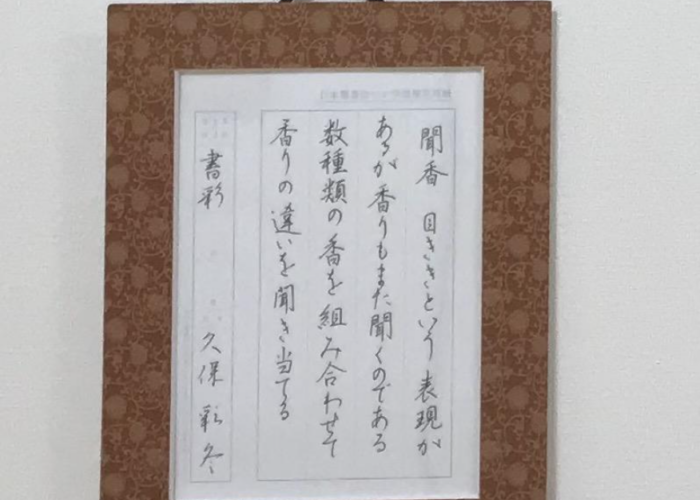 聞香 目ききという表現が
あるが香りもまた聞くのである
数種類の香を組み合わせて
香りの違いを聞き当てる
書彩 久保彩冬